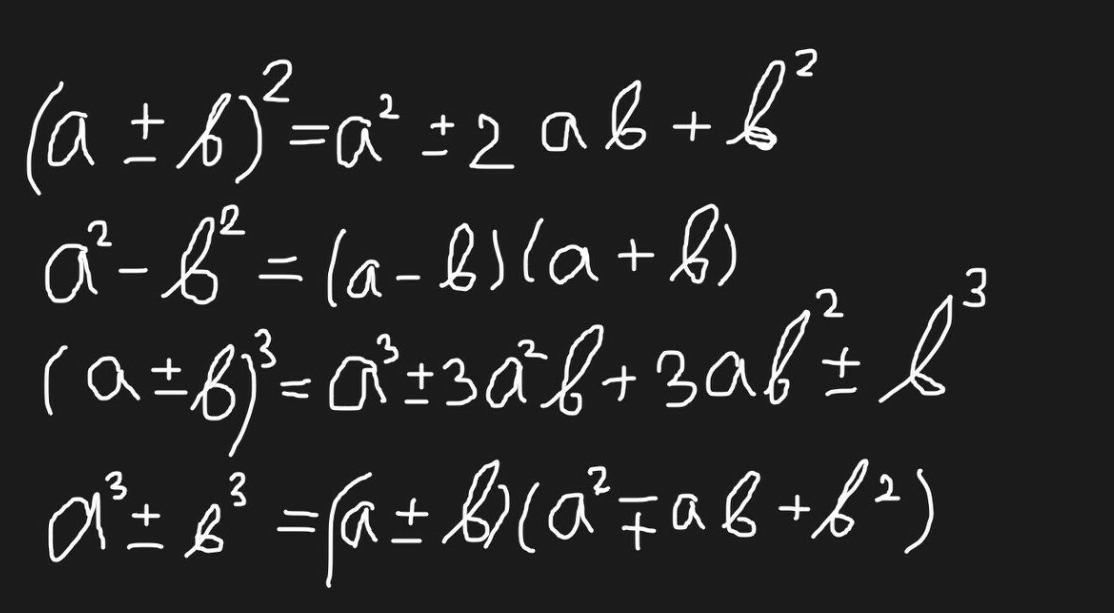 (a ± b)² = a² ± 2ab + b²
a² - b² = (a - b)(a + b)
(a ± b)³ = a³ ± 3a²b + 3ab² ± b³
a³ ± b³ = (a ± b)(a² ∓ ab + b²)